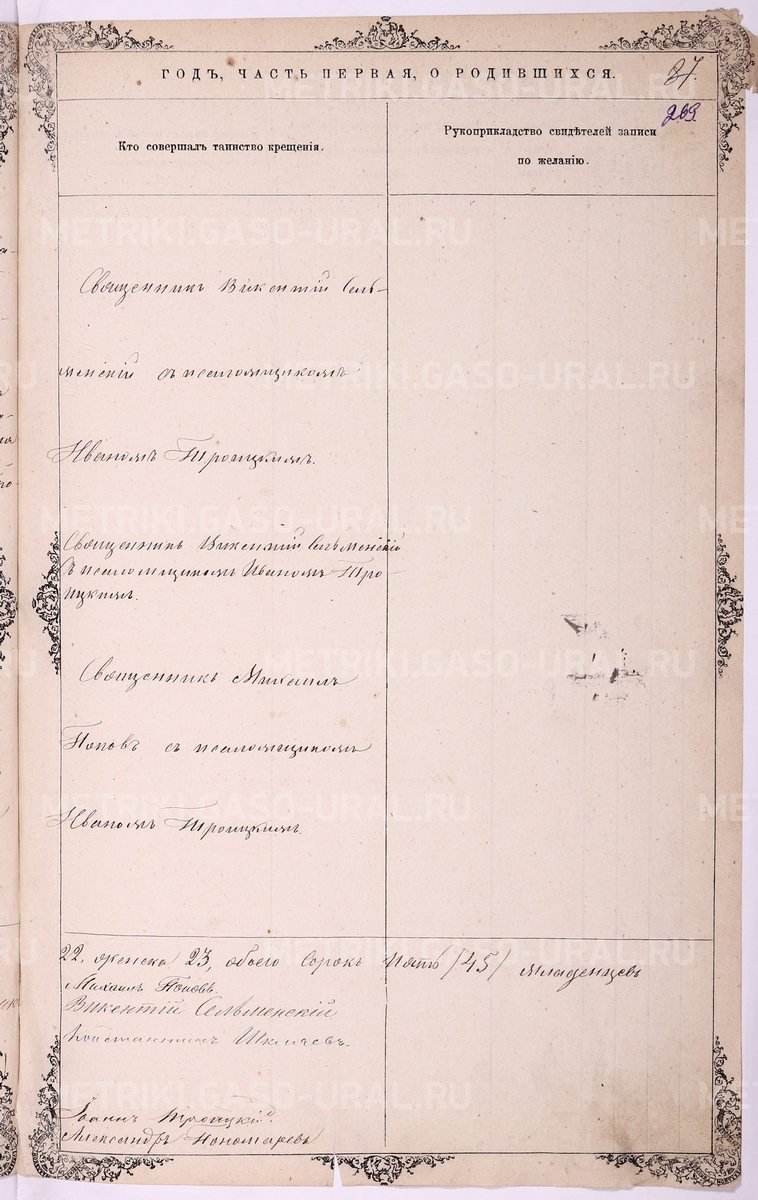 ГОДЪ, ЧАСТЬ ПЕРВАЯ, О РОДИВШИХСЯ.
27.
269.
Кто совершалъ таинство крещенія.
Рукоприкладство свидѣтелей записи
по желанію.
METRIKI.GASO-URAL.RU
Священникъ Викентій Сель-
менскій съ псаломщикомъ
Иваномъ Троицкимъ.
Священникъ Викентій Сельменскій
съ псаломщикомъ Иваномъ Тро-
ицкимъ.
Священникъ Михаилъ
Поповъ съ псаломщикомъ
Иваномъ Троицкимъ.
22, женска 23, обоего сорокъ пять /45/ младенцевъ
Михаилъ Поповъ.
Викентій Сельменскій
Константинъ
Іоаннъ Троицкій.
Александръ Пономаревъ